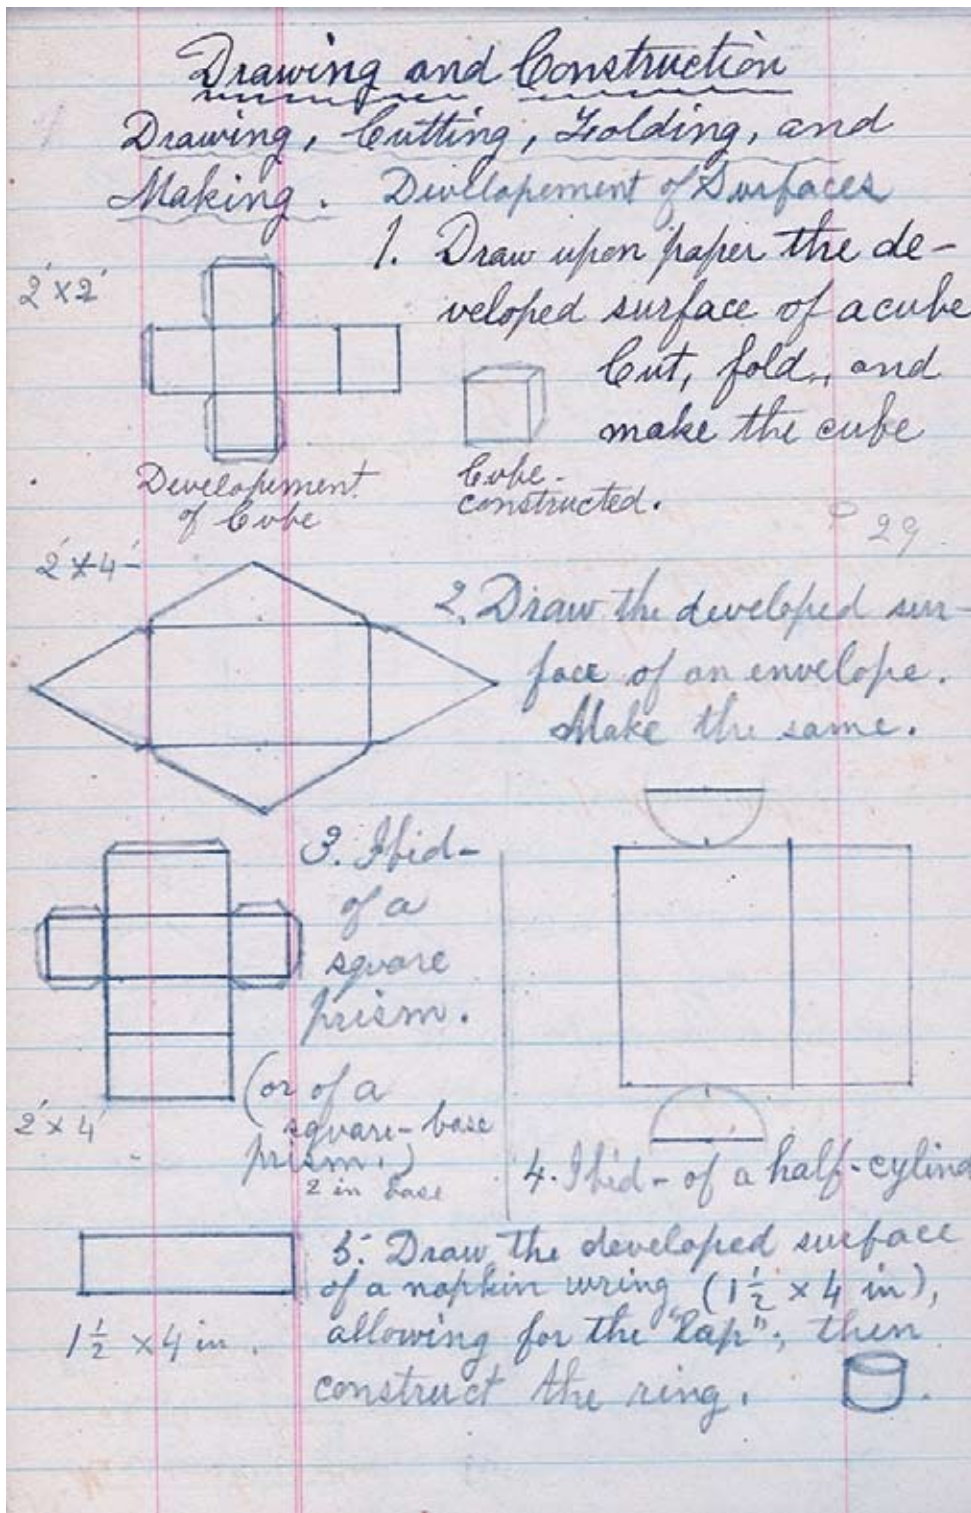 Drawing and Construction
Drawing, Cutting, Folding, and
Making. Divelopement of Surfaces
1. Draw upon paper the de-
2' x 2'
veloped surface of a cube
Cut, fold, and
make the cube
Developement
of Cube
Cube-
constructed.
29
2' x 4'
2. Draw the developed sur-
face of an envelope.
Make the same.
3. Ibid-
of a
square
prism.
(or of a
square-base
prism.)
2 in base
2' x 4'
4. Ibid- of a half-cylind
5. Draw the developed surface
of a napkin wring (1½ x 4 in),
allowing for the "lap"; then
construct the ring.
1½ x 4 in.